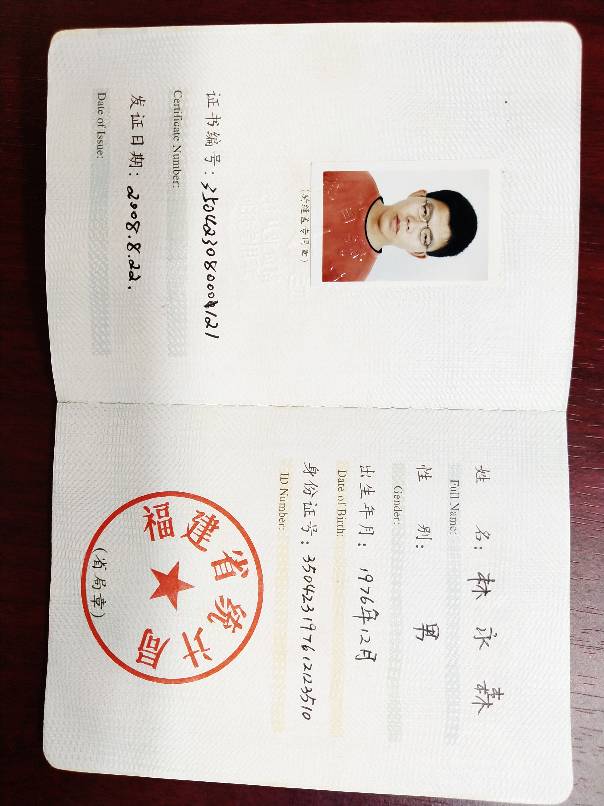 (外经盖章问西)
证书编号：3504230800012​1
Certificate Number:
发证日期：2008.8.22.
Date of Issue:
姓 名：林永森
Full Name:
性 别：男
Gender:
出生年月：1976年12月
Date of Birth:
身份证号：350423197612123510
ID Number:
福建省统计局
(省局章)